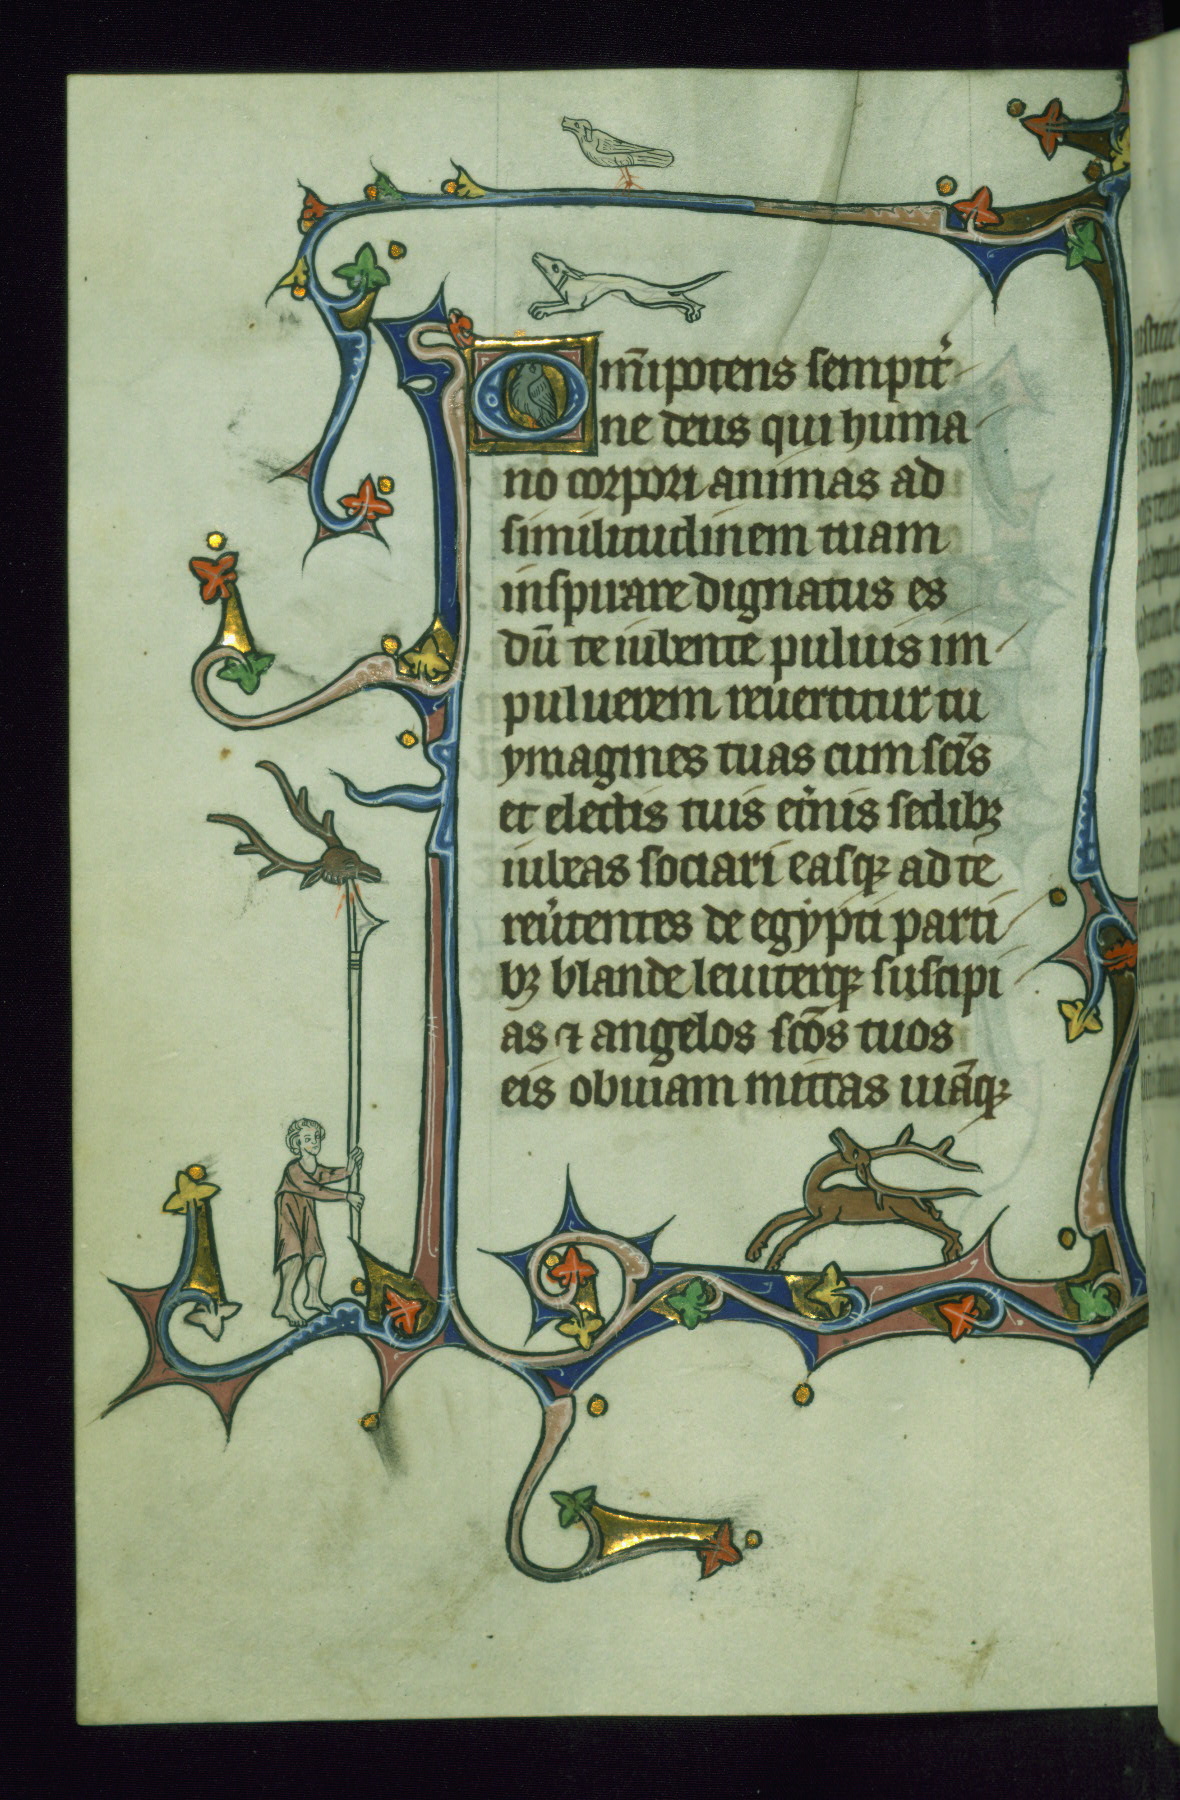 Om̅ipotens sempit̾
ne deus qui huma
no corpori animas ad
similitudinem tuam
inspirare dignatus es
du̅ te iubente puluis im
puluerem reuertitur tu
ymagines tuas cum sc̅is
et electis tuis et̾nis sedibꝫ
iubeas sociari easqꝫ ad te
reu̾tentes de egypti parti
bꝫ blande leuiterqꝫ suscipi
as ⁊ angelos sc̅os tuos
eis obuiam mittas uia̅qꝫ